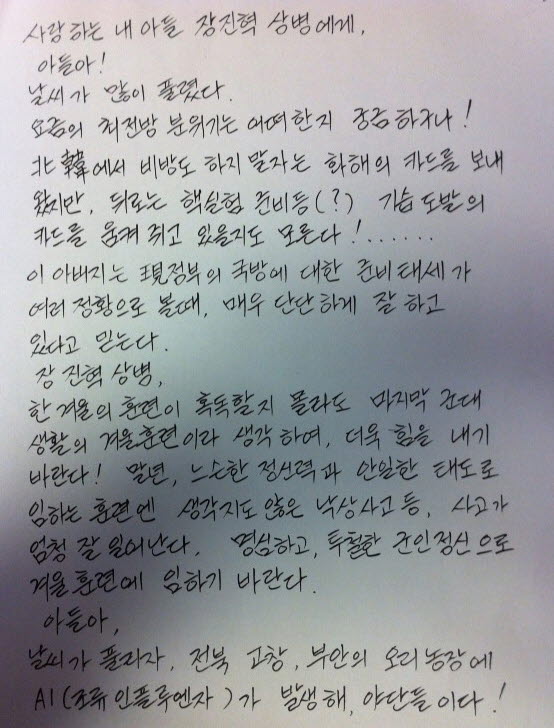 사랑하는 내 아들 장진혁 상병에게,
아들아!
날씨가 많이 풀렸다.
요즘의 최전방 분위기는 어떠한지 궁금하구나!
北韓에서 비방도 하지 말자는 화해의 카드를 보내
왔지만, 뒤로는 핵실험 준비등(?) 기습도발의
카드를 움켜 쥐고 있을지도 모른다!.......
이 아버지는 現정부의 국방에 대한 준비태세가
여러 정황으로 볼때, 매우 단단하게 잘 하고
있다고 믿는다.
장진혁 상병,
한겨울의 훈련이 혹독할지 몰라도 마지막 군대
생활의 겨울훈련이라 생각하여, 더욱 힘을 내기
바란다! 말년, 느슨한 정신력과 안일한 태도로
임하는 훈련엔 생각지도 않은 낙상사고 등, 사고가
엄청 잘 일어난다. 명심하고, 투철한 군인정신으로
겨울훈련에 임하기 바란다.
아들아,
날씨가 풀리자, 전북 고창, 부안의 오리농장에
AI(조류인플루엔자)가 발생해, 야단들이다!